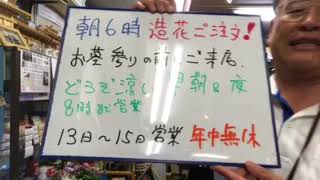 朝6時 造花ご注文!
お墓参りの前にご来店.
どうぞ涼しい早朝&夜
8時まで営業
13日〜15日営業 年中無休